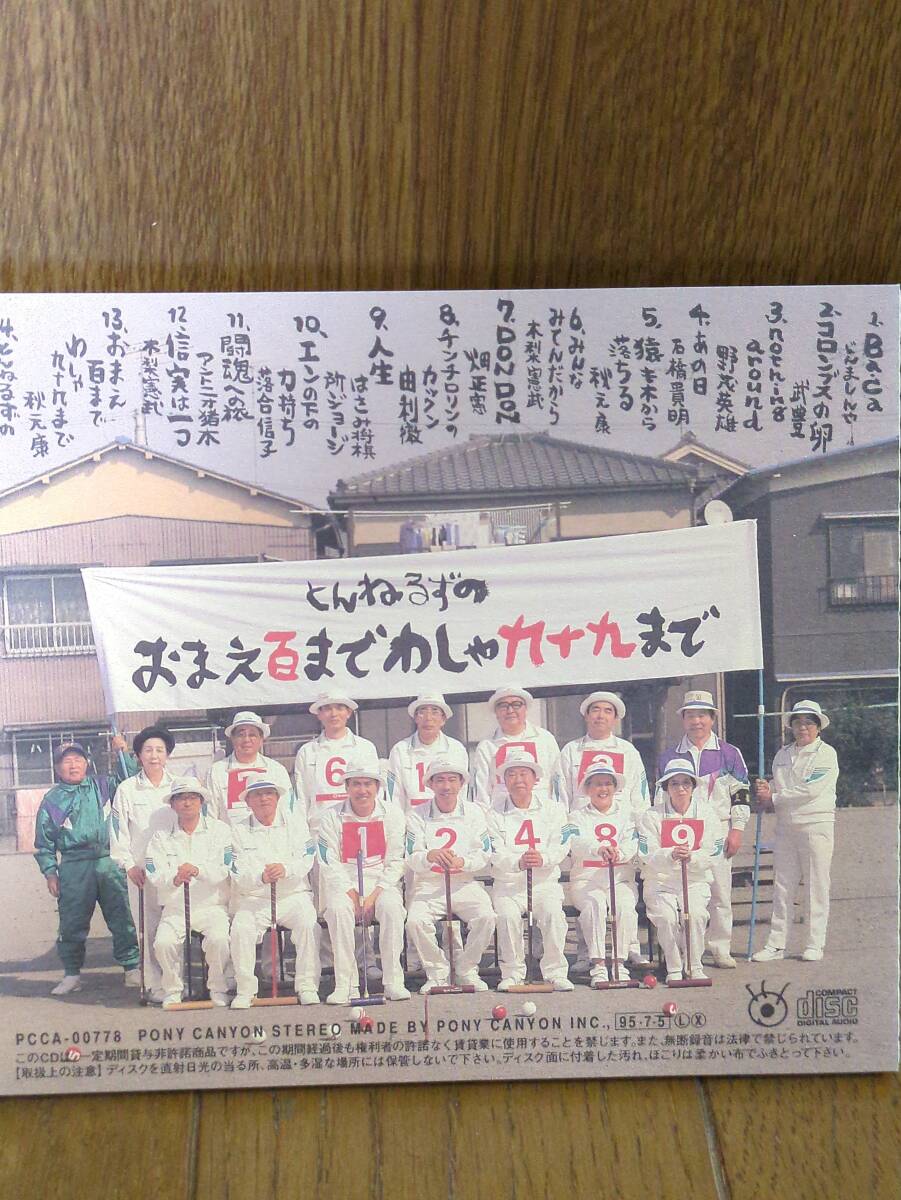 1. Baca
じんましんや
2. コロンブスの卵
武豊
3. nothing
around
野茂英雄
4. あの日
石橋貴明
5. 猿も木から
落ちる
秋元康
6. みんな
みてんだから
木梨憲武
7. DON DON
畑正憲
8. チンチロリンの
カックン
由利徹
9. 人生
はさみ将棋
所ジョージ
10. エンの下の
力持ち
落合信子
11. 闘魂への旅
アントニオ猪木
12. 信実は一つ
木梨憲武
13. おまえ
百まで
わしゃ
九十九まで
秋元康
14. とんねるずの
とんねるずの
おまえ百までわしゃ九十九まで
6
1
1
2
4
8
9
PCCA-00778 PONY CANYON STEREO MADE BY PONY CANYON INC., 95・7・5 L X
COMPACT
disc
DIGITAL AUDIO
このCDは一定期間貸与非許諾商品ですが、この期間経過後も権利者の許諾なく賃貸業に使用することを禁じます。また、無断録音は法律で禁じられています。
【取扱上の注意】ディスクを直射日光の当る所、高温・多湿な場所には保管しないで下さい。ディスク面に付着した汚れ、ほこりは柔かい布でふきとって下さい。